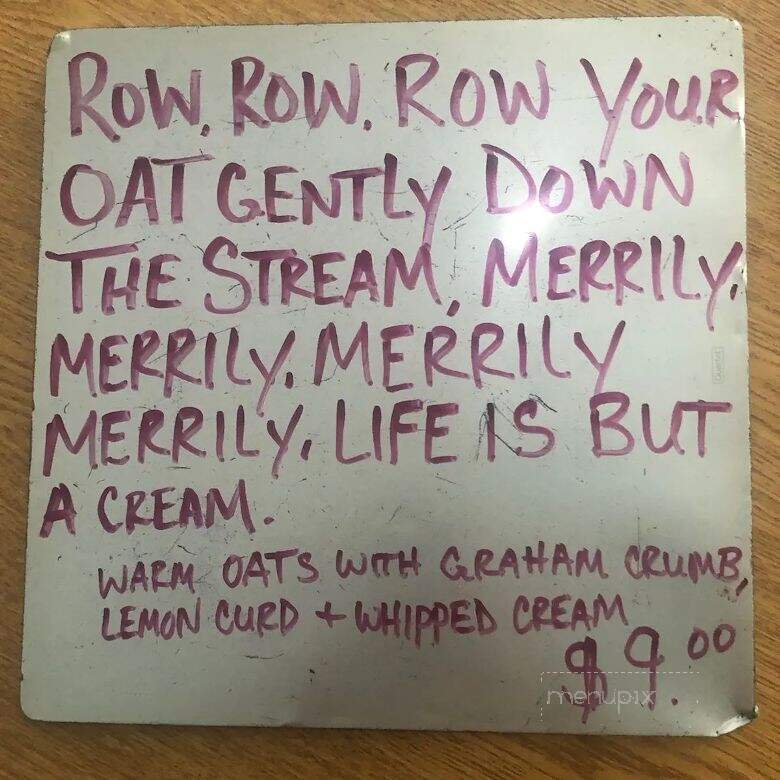 ROW, ROW, ROW YOUR
OAT GENTLY DOWN
THE STREAM, MERRILY,
MERRILY, MERRILY
MERRILY, LIFE IS BUT
A CREAM.
WARM OATS WITH GRAHAM CRUMB,
LEMON CURD + WHIPPED CREAM
$9.00
menupix